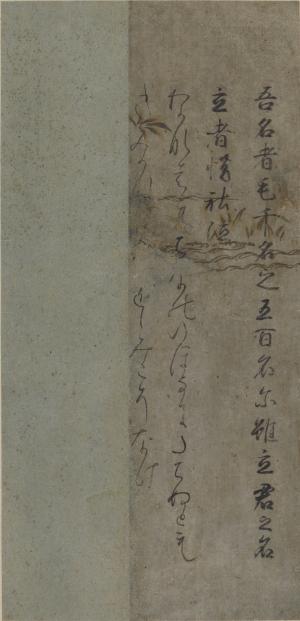 吾名者毛千名之五百名尓雖立君之名
立者惜社泣
わかなはもちなのいほなにたちぬとも
きみかな をしみこそなけ